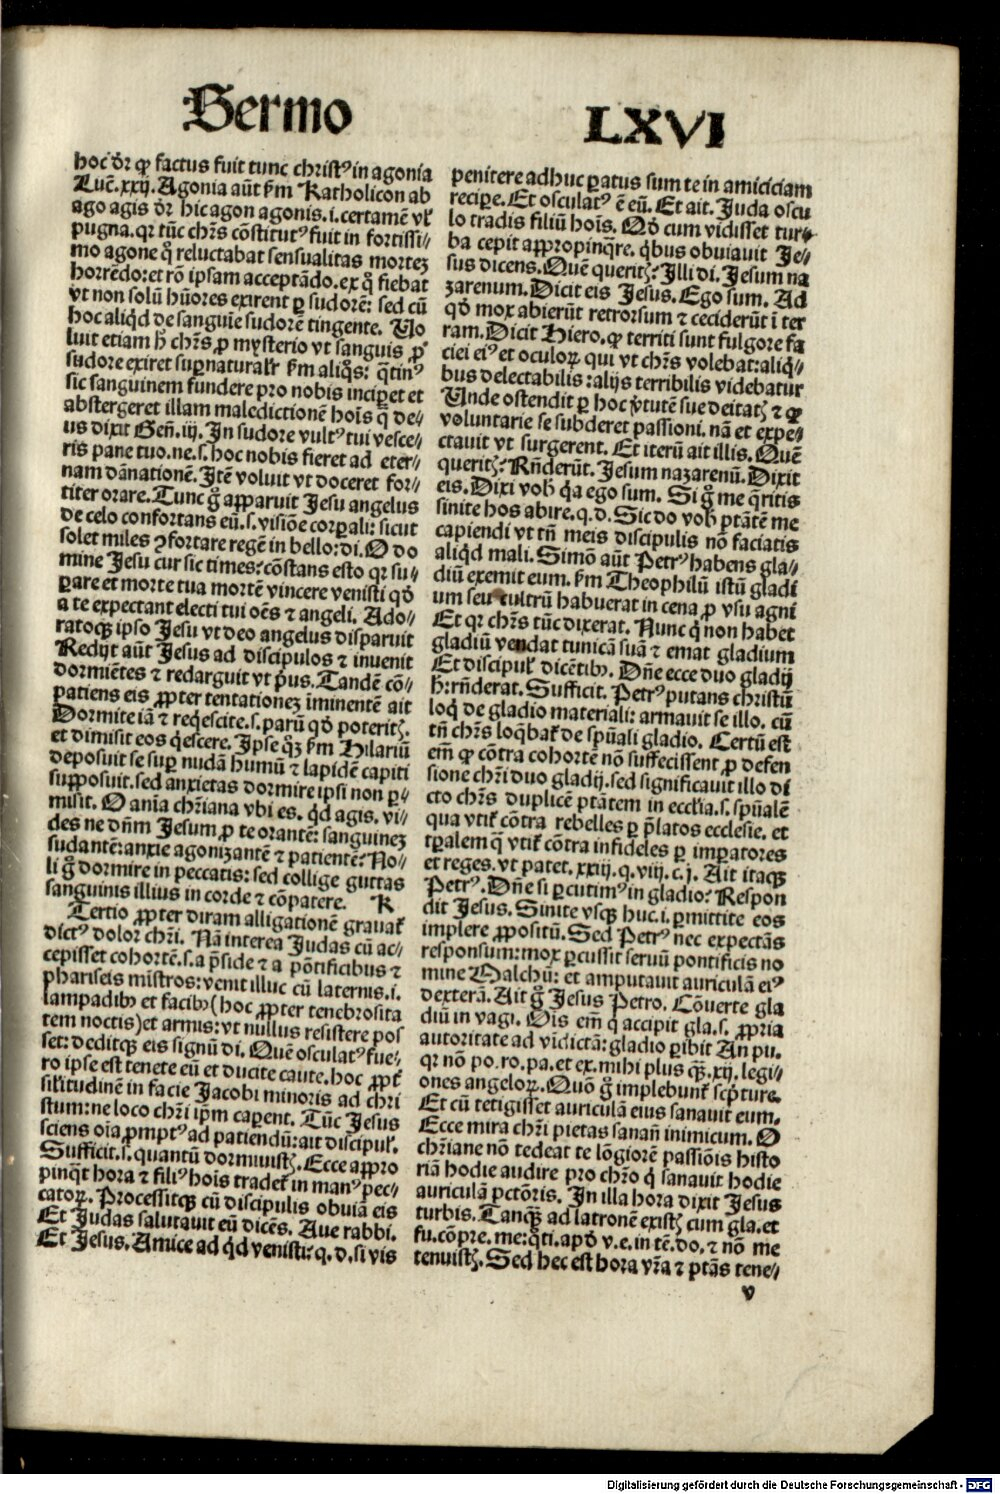 Sermo LXVI
hoc dr̄ ꝙ factus fuit tunc christꝰ in agonia
Luc̄. xxij. Agonia aūt ẜm Katholicon ab
ago agis dr̄ hic agon agonis. i. certamē vł
pugna. qr tūc chr̄s cōstitutꝰ fuit in fortissi⸗
mo agone qͦ reluctabat sensualitas mortez
horrēdo: et rō ipsam acceptādo. ex qͦ fiebat
vt non solū hūores exirent ꝑ sudorē: sed cū
hoc aliqͥd de sanguīe sudorē tingente. Uo
luit etiam ḣ chr̄s ꝓ mysterio vt sanguis ꝓ
sudore exiret suꝑnaturalr̄ ẜm aliqͦs: qͣtinꝰ
sic sanguinem fundere pro nobis inciꝑet et
abstergeret illam maledictionē hoīs qͣ de⸗
us dixit Geñ. iij. In sudore vultꝰ tui vesce⸗
ris pane tuo. ne. s. hoc nobis fieret ad eter⸗
nam dānationē. Itē voluit vt doceret for⸗
titer orare. Tunc gͦ apparuit Jesu angelus
de celo confortans eū. s. visiōe corꝑali: sicut
solet miles ꝯfortare regē in bello: di. O do
mine Jesu cur sic times? cōstans esto qr su⸗
ꝑare et morte tua mortē vincere venisti qͦd
a te expectant electi tui oēs ⁊ angeli. Ado⸗
ratoqꝫ ipso Jesu vt deo angelus disparuit
Redijt aūt Jesus ad discipulos ⁊ inuenit
dormiētes ⁊ redarguit vt pͥus. Tandē cō⸗
patiens eis ꝓpter tentationez īminentē ait
Dormite iā ⁊ reqͥescite. s. parū qͦd poteritꝭ.
et dimisit eos qͥescere. Ipse qͦꝫ ẜm Hilariū
deposuit se suꝑ nudā humū ⁊ lapidē capiti
supposuit. sed anxietas dormire ipsi non ꝑ⸗
misit. O anīa chr̄iana vbi es. qͥd agis. vi⸗
des ne dn̄m Jesum ꝓ te orantē: sanguinez
sudantē: anxie agonizantē ⁊ patientē? No⸗
li gͦ dormire in peccatis: sed collige guttas
sanguinis illius in corde ⁊ cōpatere. K
Tertio ꝓpter diram alligationē grauat̄
dictꝰ dolor chr̄i. Nā interea Judas cū ac⸗
cepisset cohortē. s. a p̄side ⁊ a pōtificibus ⁊
phariseis mīstros: venit illuc cū laternis. i.
lampadibꝰ et facibꝰ (hoc ꝓpter tenebrosita
tem noctis) et armis: vt nullus resistere pos
set: deditqꝫ eis signū di. Quē osculatꝰ fue⸗
ro ipse est tenete eū et ducite caute. hoc ꝓpt̄
sil̄itudinē in facie Jacobi minoris ad chri
stum: ne loco chr̄i ip̄m caꝑent. Tūc Jesus
sciens oīa ꝓmptꝰ ad patiendū: ait discipul̄.
Sufficit. s. quantū dormiuistꝭ. Ecce appro
pinqͣt hora ⁊ filiꝰ hoīs tradet̄ in manꝰ pec⸗
catoꝝ. Processitqꝫ cū discipulis obuiā eis
Et Judas salutauit eū dicēs. Aue rabbi.
Et Jesus. Amice ad qͥd venisti? q. d. si vis
penitere adhuc ꝑatus sum te in amiciciam
reciꝑe. Et osculatꝰ ē eū. Et ait. Juda oscu
lo tradis filiū hoīs. Qd̄ cum vidisset tur⸗
ba cepit appropinqͣre. qͥbus obuiauit Je⸗
sus dicens. Quē queritꝭ? Illi di. Jesum na
zarenum. Dicit eis Jesus. Ego sum. Ad
qͦd mox abierūt retrorsum ⁊ ceciderūt ī ter
ram. Dicit Hiero. ꝙ territi sunt fulgore fa
ciei eiꝰ et oculoꝝ qui vt chr̄s volebat: aliqͥ⸗
bus delectabilis: alijs terribilis videbatur
Unde ostendit ꝑ hoc v̓tutē sue deitatꝭ ⁊ ꝙ
voluntarie se subderet passioni. nā et expe⸗
ctauit vt surgerent. Et iterū ait illis. Quē
queritꝭ? Rn̄derūt. Jesum nazarenū. Dixit
eis. Dixi vobꝭ qͥa ego sum. Si gͦ me qͣritis
sinite hos abire. q. d. Sic do vobꝭ ptātē me
capiendi vt tn̄ meis discipulis nō faciatis
aliqͥd mali. Simō aūt Petrꝰ habens gla⸗
diū exemit eum. ẜm Theophilū istū gladi
um seu cultrū habuerat in cena ꝓ vsu agni
Et qr chr̄s tūc dixerat. Nunc qͥ non habet
gladiū vendat tunicā suā ⁊ emat gladium
Et discipul̄ dicētibꝰ. Dn̄e ecce duo gladij
h̄: rn̄derat. Sufficit. Petrꝰ putans christū
loqͥ de gladio materiali: armauit se illo. cū
tn̄ chr̄s loqͤbat̄ de spūali gladio. Certū est
em̄ ꝙ cōtra cohortē nō suffecissent ꝓ defen
sione chr̄i duo gladij. sed significauit illo di
cto chr̄s duplicē ptātem in eccl̄ia. s. spūalē
qua vtit̄ cōtra rebelles ꝑ p̄latos ecclesie. et
tꝑalem qͣ vtit̄ cōtra infideles ꝑ imꝑatores
et reges. vt patet. xxiij. q. viij. c. j. Ait itaqꝫ
Petrꝰ. Dn̄e si ꝑcutimꝰ in gladio? Respon
dit Jesus. Sinite vsqꝫ huc. i. ꝑmittite eos
implere ꝓpositū. Sed Petrꝰ nec expectās
responsum: mox ꝑcussit seruū pontificis no
mine Malchū: et amputauit auriculā eiꝰ
dexterā. Ait gͦ Jesus Petro. Cōuerte gla
diū in vagi. Oīs em̄ qͥ accipit gla. s. ꝓpria
autoritate ad vidictā: gladio ꝑibit An pu.
qr nō po. ro. pa. et ex. mihi plus qͣꝫ. xij. legi⸗
ones angeloꝝ. Quō gͦ implebunt̄ scp̄ture.
Et cū tetigisset auriculā eius sanauit eum.
Ecce mira chr̄i pietas sanan̄ inimicum. O
chr̄iane nō tedeat te lōgiorē passiōis histo
riā hodie audire pro chr̄o qͥ sanauit hodie
auriculā pctōris. In illa hora dixit Jesus
turbis. Tanqͣꝫ ad latronē existꝭ cum gla. et
fu. cōpre. me: qͦti. apd̓ v. e. in tē. do. ⁊ nō me
tenuistꝭ. Sed hec est hora vr̄a ⁊ ptās tene⸗
v
Digitalisierung gefördert durch die Deutsche Forschungsgemeinschaft - DFG